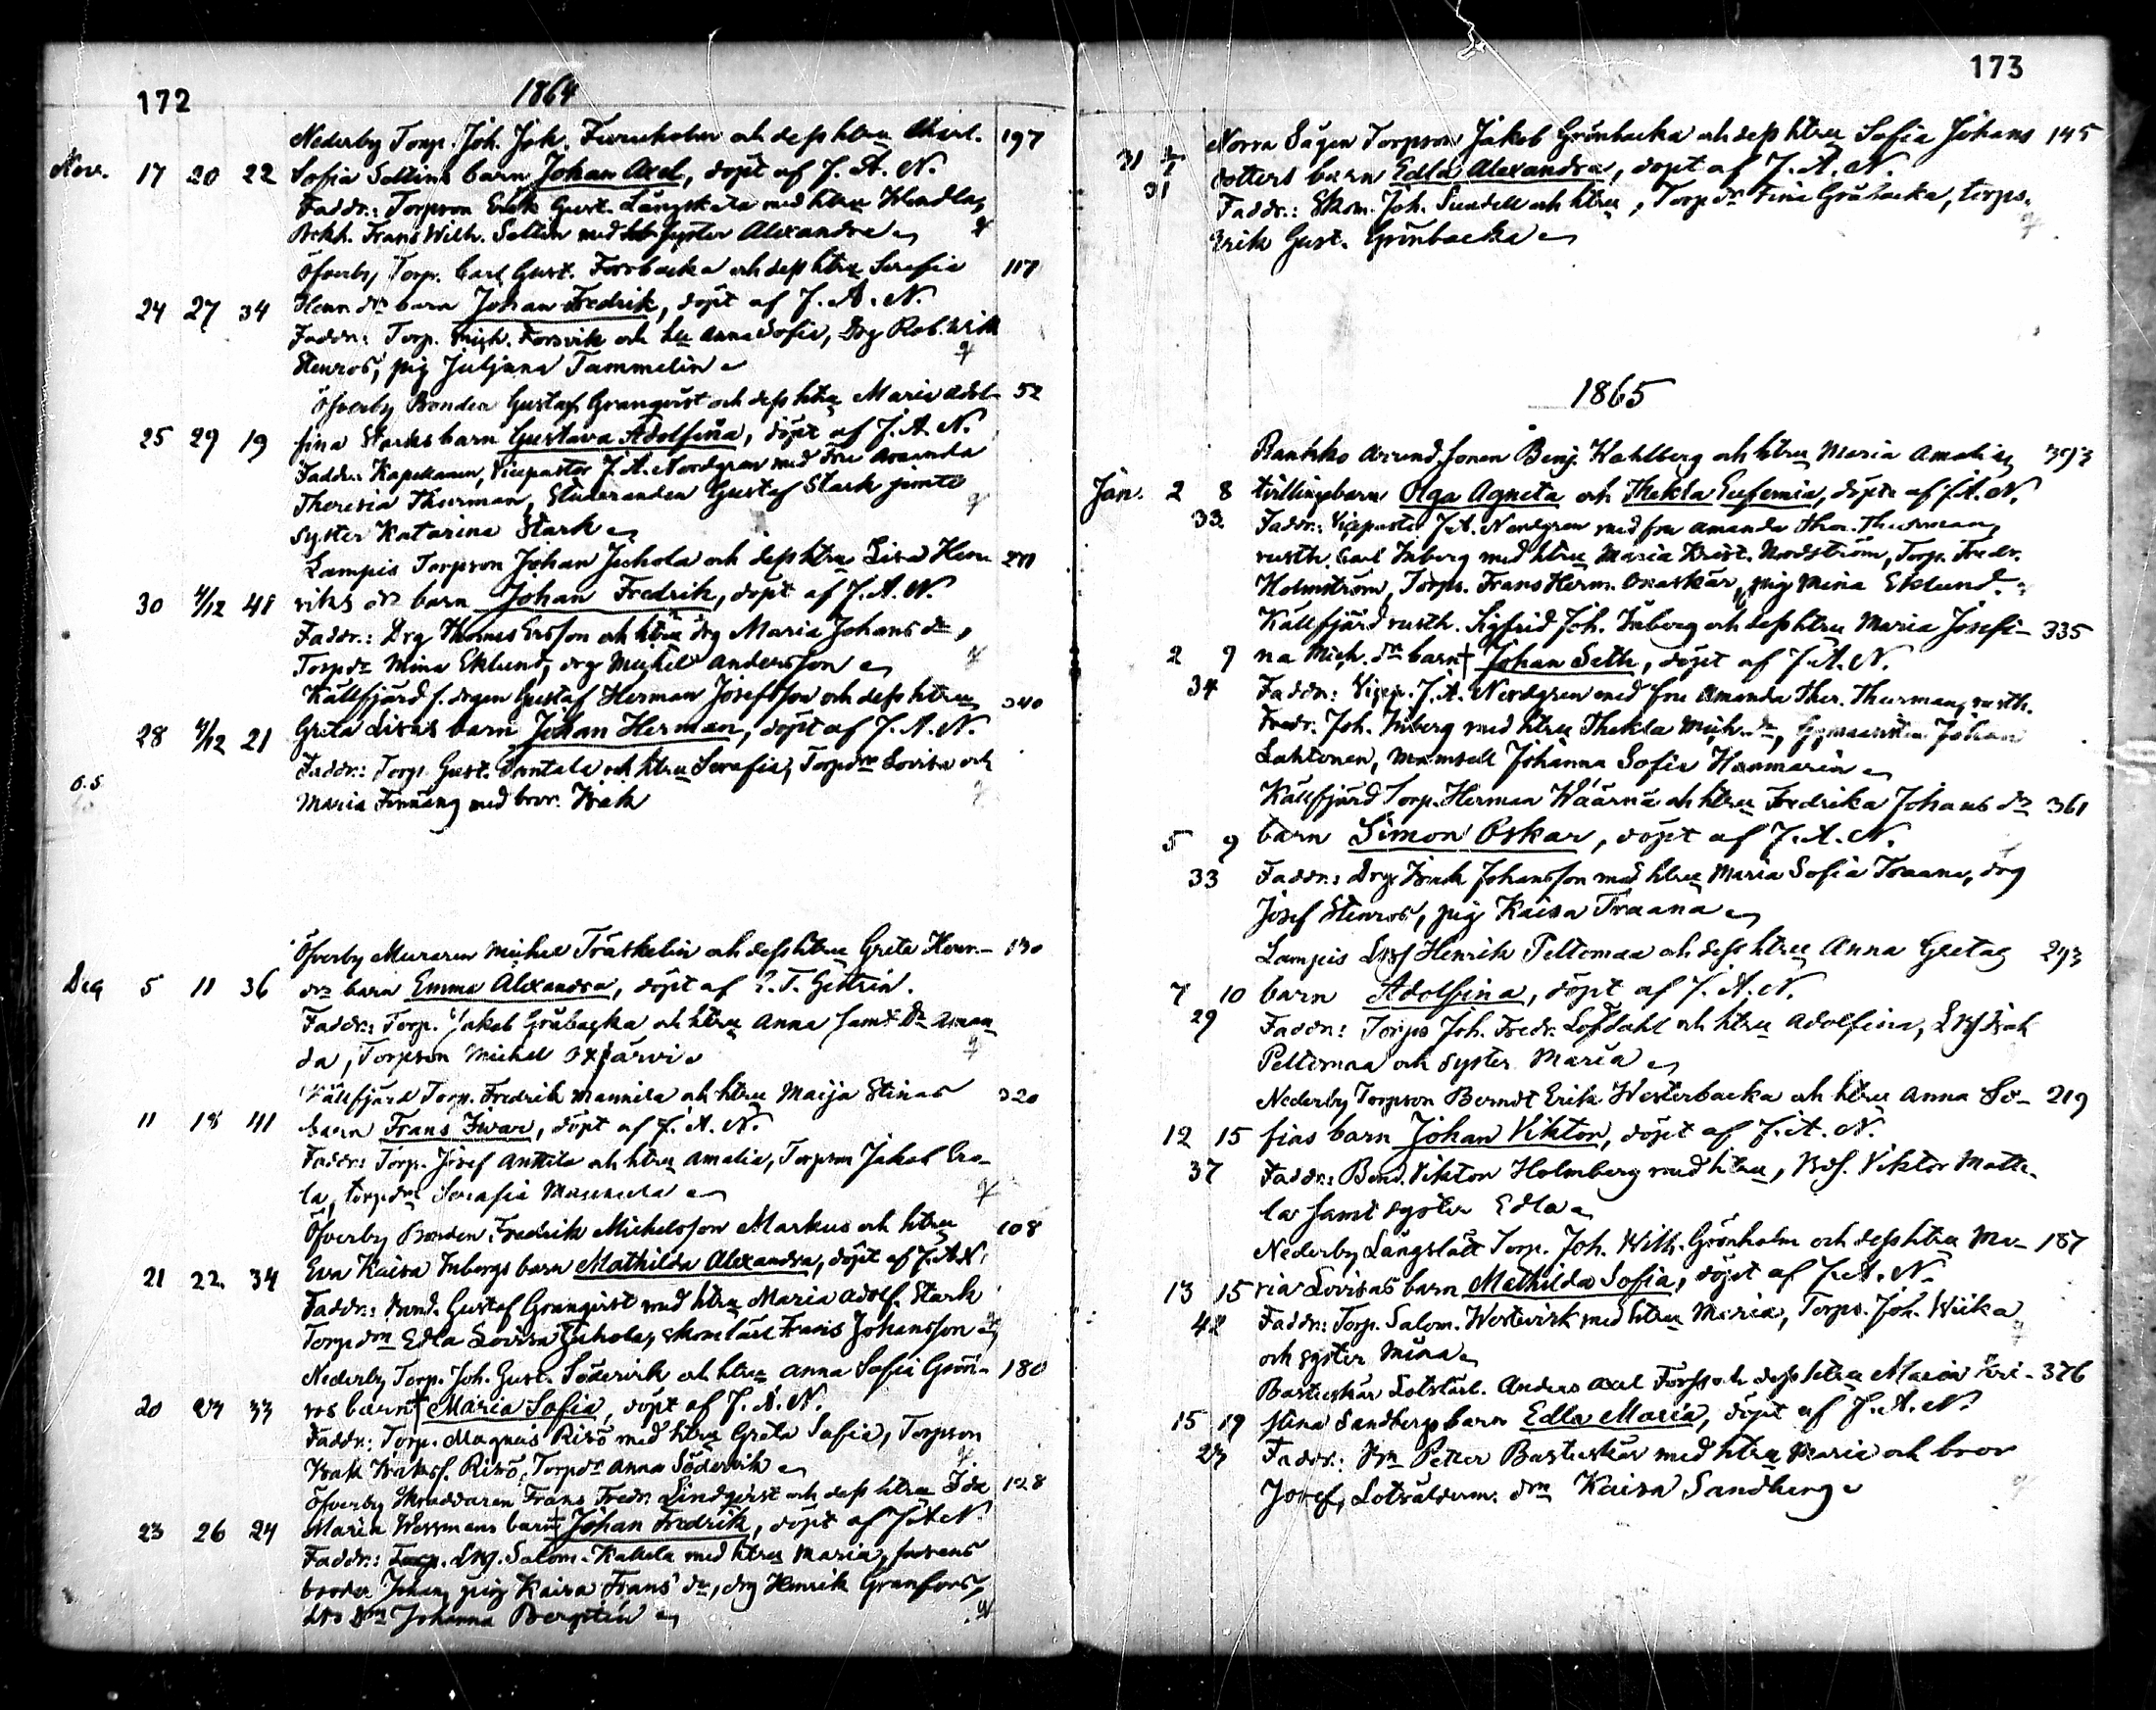 172
1864
Nederby Torp. Joh. Joh. Furuholm och dess htru Christ. 197
Nov. 17 20 22 Sofia Selins barn Johan Axel, döpt af J. A. N.
Faddr.: Torpson Erik Gust. Långskala med htru
Bokh. Frans Wilh. Selin med syster Alexandra
Öfverby Torp. Carl Gust. Forsbacka och dess htru Serafia 117
24 27 34 Henr. dr barn Johan Fredrik, döpt af J. A. N.
Faddr.: Torp. Mich. Forsvik och hu Anna Sofia, Drg Rob. Wilh
Stenros, pig Juljana Tammelin
Öfverby Bonden Gustaf Granqvist och dess htru Maria Adol- 52
25 29 19 fina Starks barn Gustava Adolfina, döpt af J. A. N.
Faddr.: Kapellanen, Vicepastor J. A. Nordgren med fru Amanda
Theresia Thurman, Studeranden Gustaf Stark jemte
syster Katarina Stark
Lampis Torpson Johan Juhola och dess htru Lisa Hen-
30 4/12 41 riks dr barn Johan Fredrik, döpt af J. A. N.
Faddr.: Drg Thomas Ersson och htru drg Maria Johans dr,
Torpdr Mina Eklund, drg Michel Andersson
Källfjärd f. drgen Gustaf Herman Josefsson och dess htru 340
28 4/12 21 Greta Lisas barn Johan Herman, döpt af J. A. N.
Faddr.: Torp. Gust. Santala och htru Serafia, Torpdr Lovisa och
Maria Finnäng med bror Isak
Öfverby Muraren Michel Träskelin och dess htru Greta Henr.- 130
Dec 5 11 36 dr barn Emma Alexandra, döpt af
Faddr.: Torp. Jakob Gråbacka och htru Anna samt Dr Aman
da, Torpson Michel Oxjärvi
Källfjärd Torp. Fredrik Mannila och htru Maija Stinas 320
11 18 41 barn Frans Iwar, döpt af J. A. N.
Faddr.: Torp. Josef Anttila och htru Amalia, Torpson Jakob Ero-
la, torpdr Serafia
Öfverby Bonden Fredrik Michelsson Markus och htru 108
21 22 34 Eva Kaisa Inbergs barn Mathilda Alexandra, döpt af J. A. N.
Faddr.: Bond. Gustaf Granqvist med htru Maria Adolf. Stark
Torpdr Edla Lovisa Juhola, skom.lärl Frans Johansson
Nederby Torp. Joh. Gust. Södervik och htru Anna Sofia Grön- 180
20 27 33 ros barn † Maria Sofia, döpt af J. A. N.
Faddr.: Torp. Magnus Risö med htru Greta Sofia, Torpson
Isak Isakss. Risö, Torpdr Anna Södervik
Öfverby Skräddaren Frans Fredr. Lindqvist och dess htru Ida 128
23 26 24 Maria Wessmans barn † Johan Fredrik, döpt af J. A. N.
Faddr.: Salom. Kakela med htru Maria, fadrens
broder Johan, pig Kaisa Frans dr, drg Henrik Granfors,
dr Johanna Bergstén
173
Norra Sågen Torpson Jakob Grönbacka och dess htru Sofia Johans 145
31 dotters barn Edla Alexandra, döpt af J. A. N.
31 Faddr.: Skom. Joh. Sundell och htru, Torp dr Fina Gråbacka, torps.
Erik Gust. Grönbacka
1865
Rankko Arrend. sonen Benj. Wahlberg och htru Maria Amalias 393
Jan. 2 8 tvillingbarn Olga Agneta och Thekla Eufemia, döpta af J. A. N.
33 Faddr.: Vicepastor J. A. Nordgren med fru Amanda Ther. Thurman,
rusth. Carl Inberg med htru Maria Krist. Nordström, Torp. Fredr.
Holmström, Torps. Frans Herm. Oxaskär, pig Mina Eklund.
Källfjärd rusth. Sigfrid Joh. Inberg och dess htru Maria Josefi- 335
2 9 na Mich. dr barn † Johan Seth, döpt af J. A. N.
34 Faddr.: Vicep. J. A. Nordgren med fru Amanda Ther. Thurman, rusth.
Fredr. Joh. Inberg med htru Thekla Mich. dr, Johan
Lahtonen, mamsell Johanna Sofia Hammarin
Källfjärd Torp. Herman Wäärnä och htru Fredrika Johans dr 361
5 9 barn Simon Oskar, döpt af J. A. N.
33 Faddr.: Drg Isak Johansson med htru Maria Sofia Traana, drg
Josef Stenros, pig Kaisa Traana
Lampis Henrik Peltomaa och dess htru Anna Gretas 293
7 10 barn Adolfina, döpt af J. A. N.
29 Faddr.: Torps Joh. Fredr. Löfdahl och htru Adolfina, Isak
Peltomaa och syster Maria
Nederby Torpson Berndt Erik Westerbacka och htru Anna So- 219
12 15 fias barn Johan Viktor, döpt af J. A. N.
37 Faddr.: Bond. Viktor Holmberg med htru, Viktor Matte-
la samt syster Edla
Nederby Långslätt Torp. Joh. Wilh. Grönholm och dess htru Ma- 187
13 15 ria Lovisas barn Mathilda Sofia, döpt af J. A. N.
42 Faddr.: Torp. Salom. Westervik med htru Maria, Torps. Joh. Wiika
och syster Mina
Busteskär Lotslärl. Anders Axel Forss och dess htru Maria Kri- 376
15 19 stina Sandbergs barn Edla Maria, döpt af J. A. N.
27 Faddr.: Petter Busteskär med htru Maria och bror
Josef, Lotsålderm. dr Kaisa Sandberg